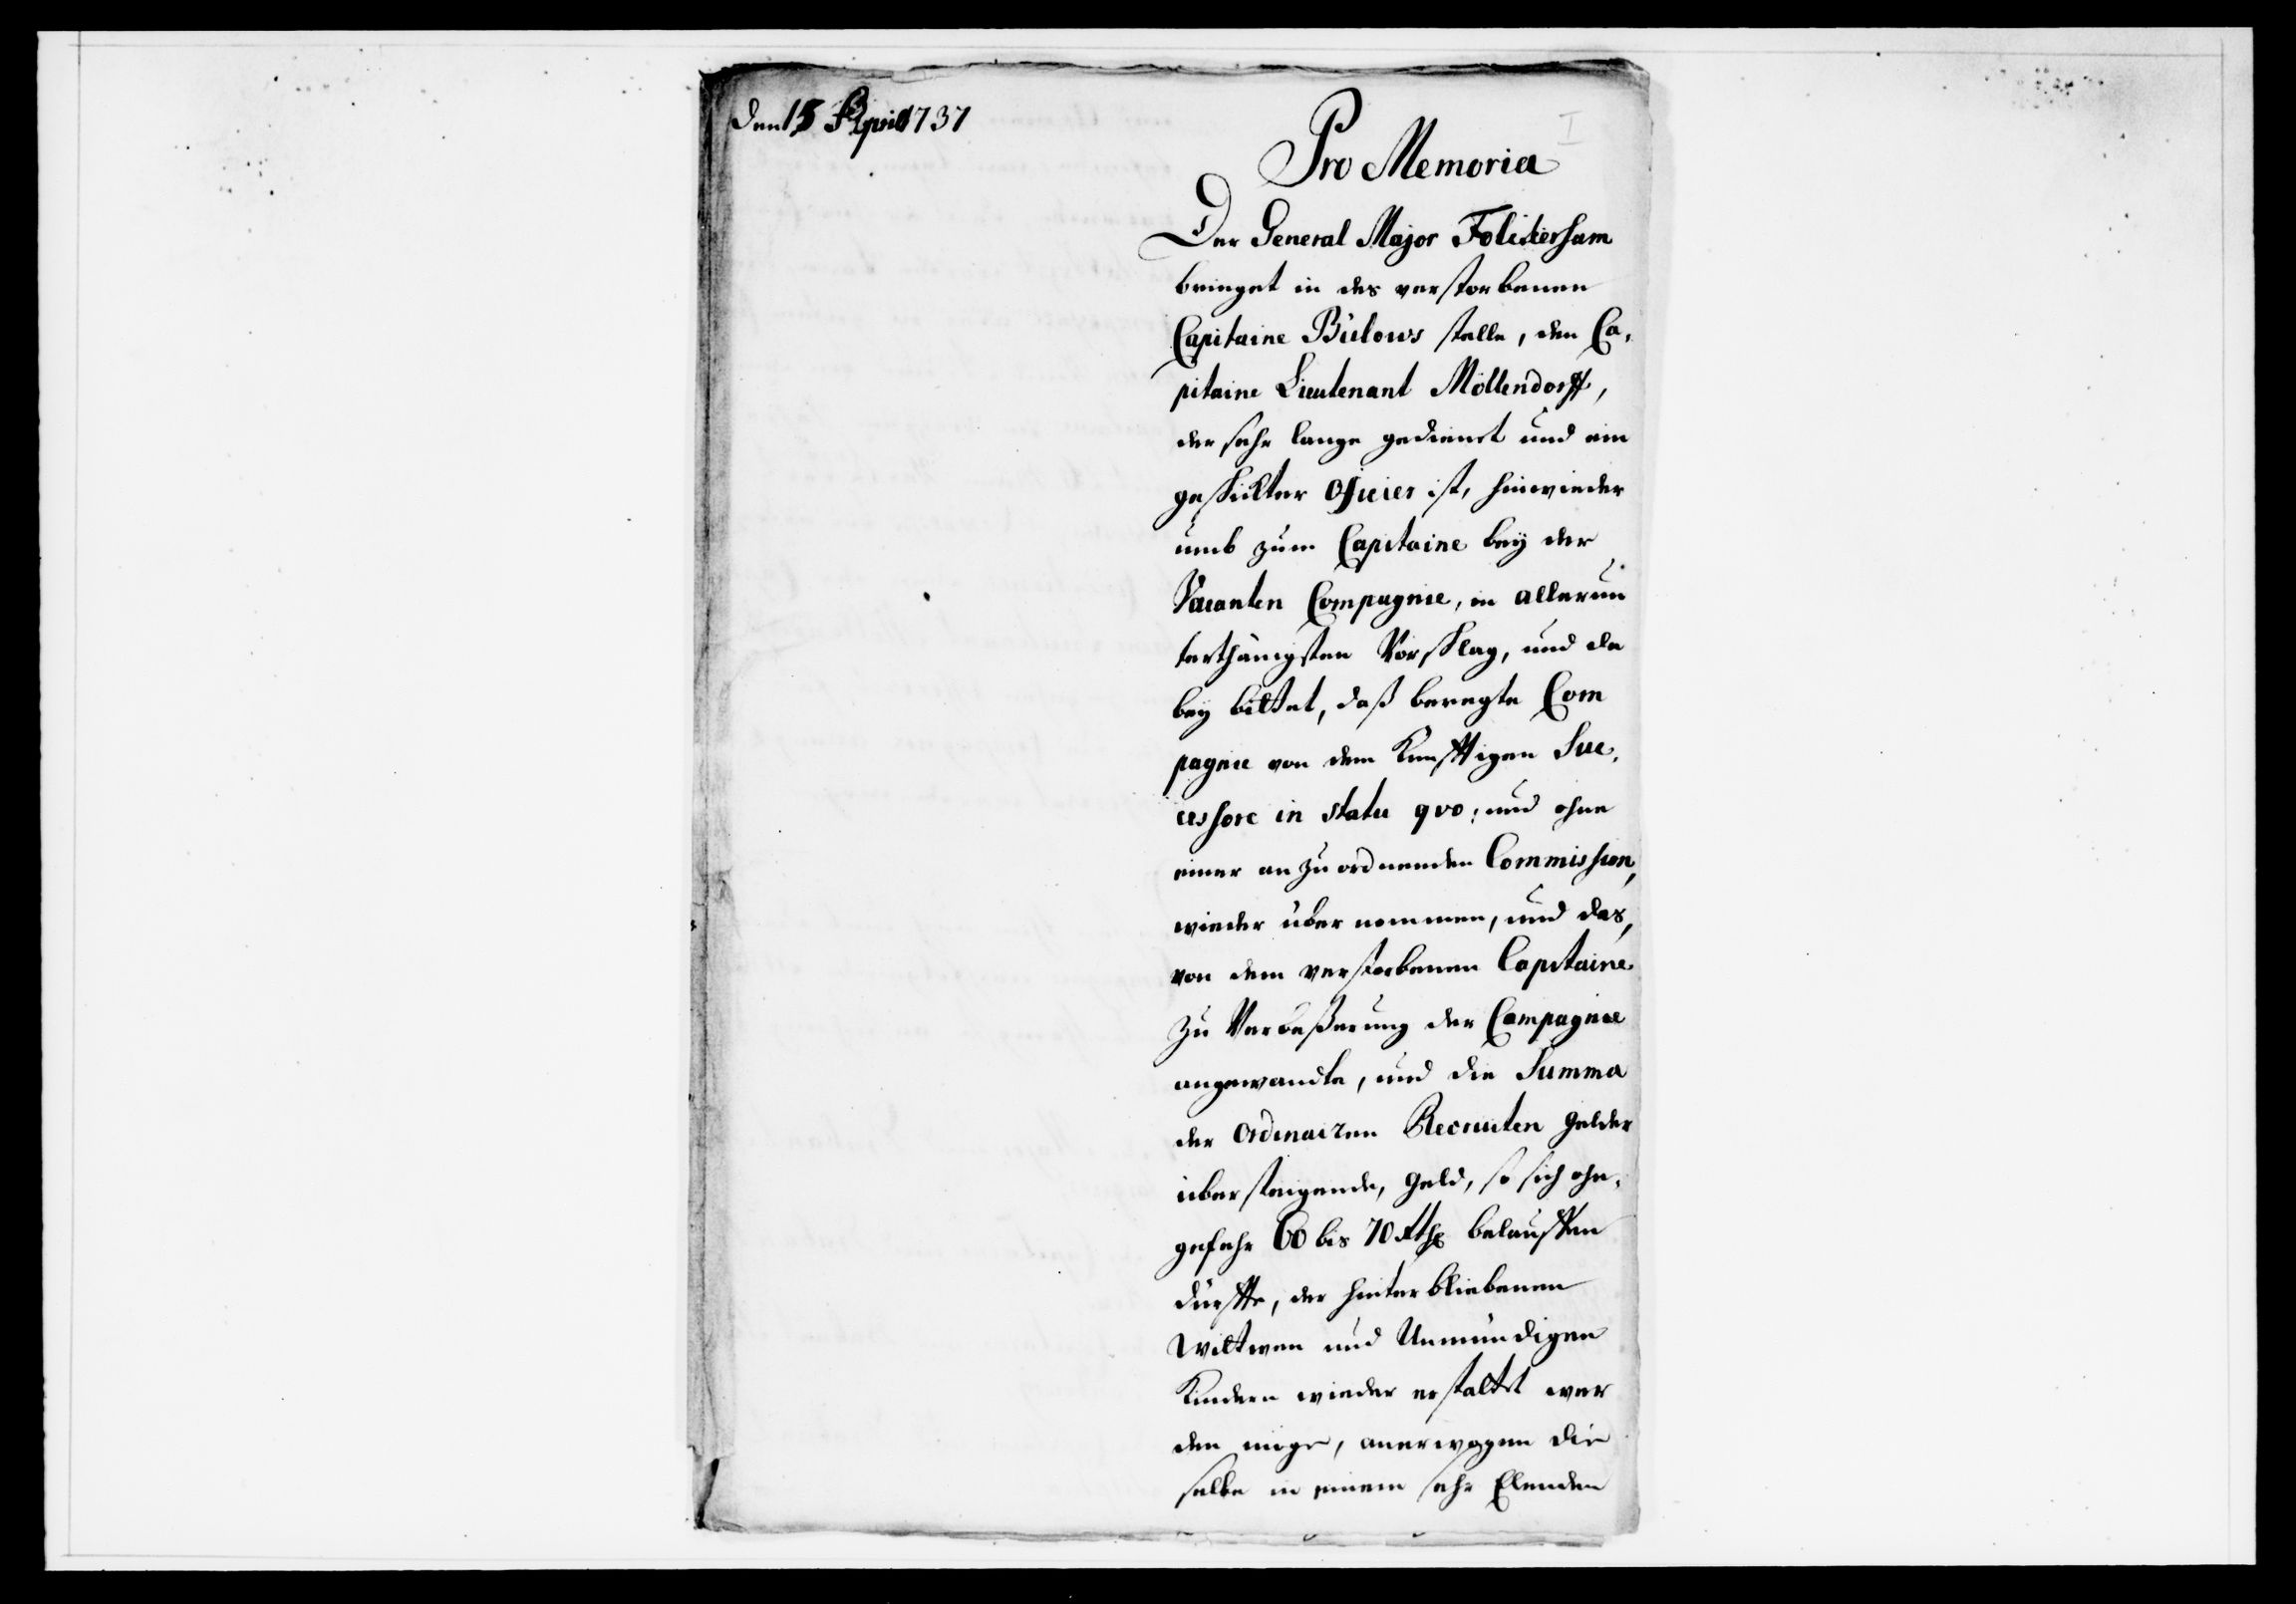 den 15 April 1737
I
Pro Memoria
Der General Major Folckersam
bringet in des verstorbenen
Capitaine Bülows stelle, den Ca,
pitaine Lieutenant Möllendorff,
der sehr lange gedienet und ein
geschickter Officier ist, hinwieder
umb zum Capitaine bey der
Vacanten Compagnie, in allerun
terthänigsten Vorschlag, und da
bey bittet, daß beregte Com
pagnie von dem Künfftigen Suc,
cessore in statu qvo; und ohne
einer anzuordnenden Commission,
wieder übernommen, und das,
von dem verstorbenen Capitaine
zu Verbeßerung der Compagnie
angewandte, und die Summa
der Ordinairen Recruten Gelder
übersteigende, Geld, so sich ohn,
gefehr 60 bis 70 Rthl belauffen
dürffte, der hinterbliebenen
Wittwen und Unmündigen
Kindern wieder erstattet wer
den möge, anerwogen die
selbe in einem sehr Elenden